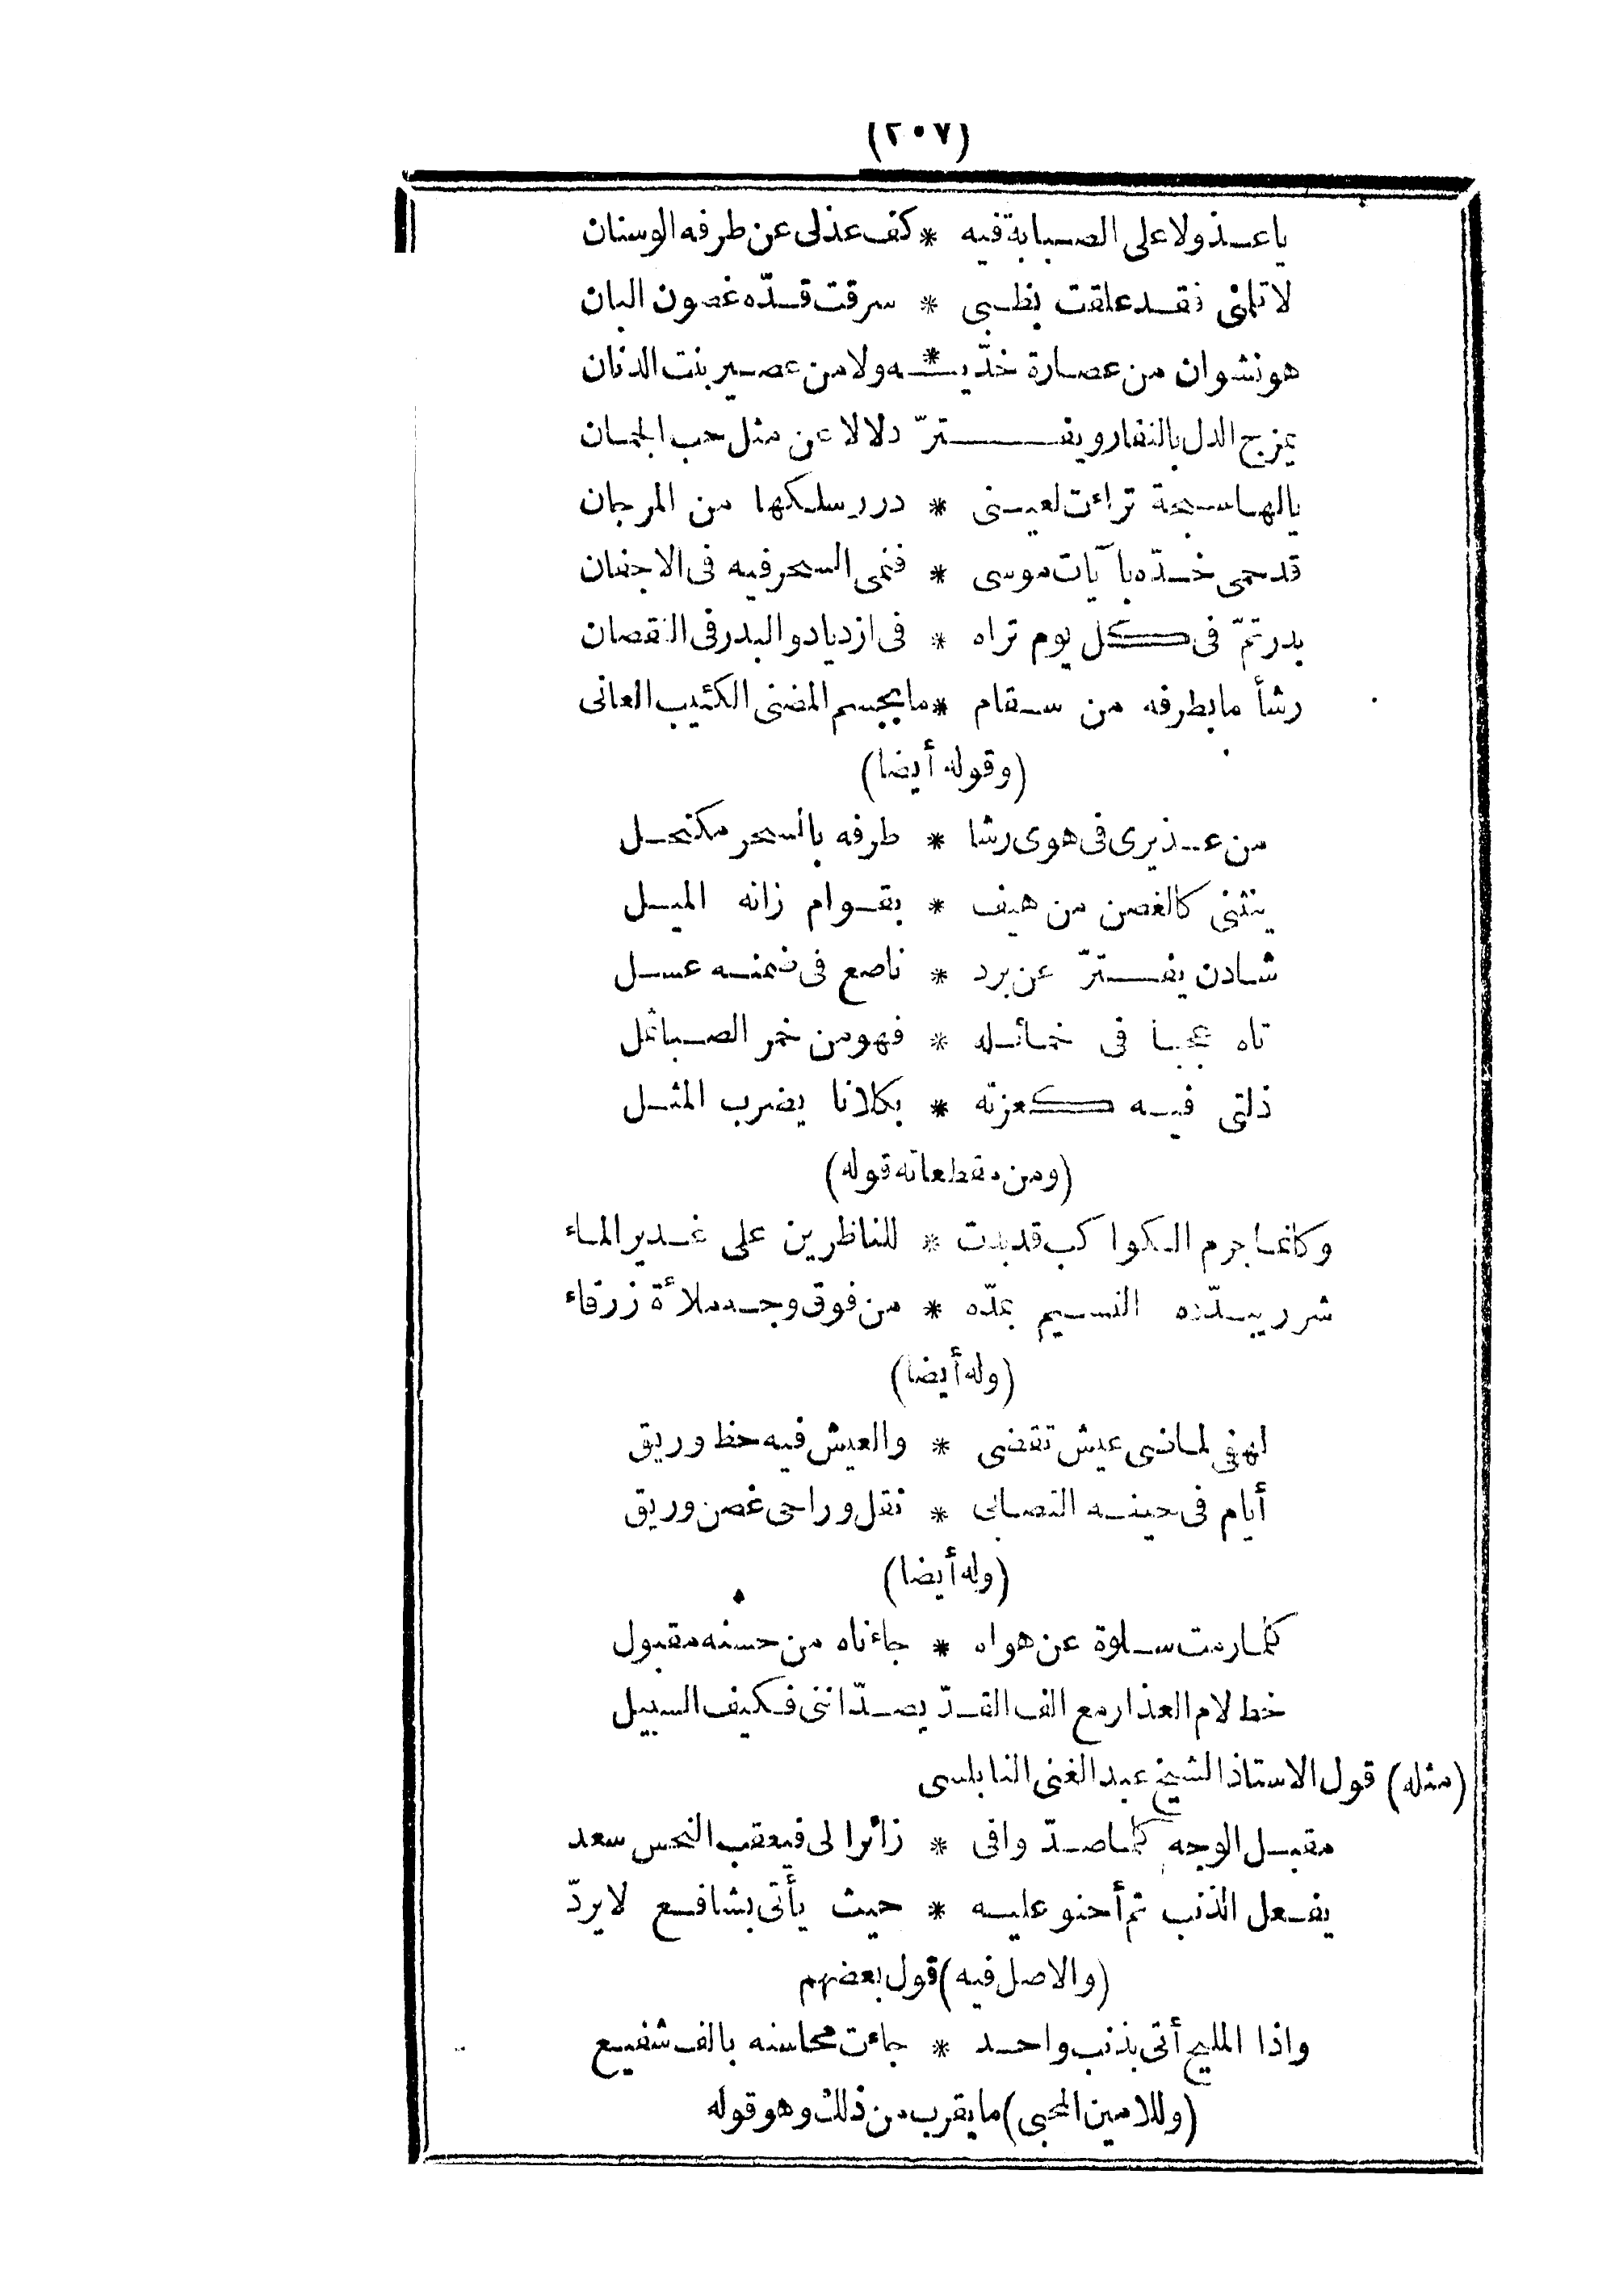 (٢٠٧)
ياعذولا على الصبابة فيه * كف عذلى عن طرفه الوسنان
لا تلمنى فقد علقت بظبى * سرقت قدّه غصون البان
هو نشوان من عصارة خدّيـ * ـه ولا من عصير بنت الدنان
يمزج الدل بالنفار ويفترّ دلالا عن مثل حب الجمان
يالها سبحة تراءت لعينى * درر سلكها من المرجان
قد حمى خدّه بآيات موسى * فنمى السحر فيه فى الاجفان
بدر تمّ فى كل يوم تراه * فى ازدياد والبدر فى النقصان
رشأ ما بطرفه من سقام * ما بجسم المضنى الكئيب العانى
(وقوله أيضا)
من عذيرى فى هوى رشا * طرفه بالسحر مكتحل
ينثنى كالغصن من هيف * بقوام زانه الميل
شادن يفترّ عن برد * ناصع فى ضمنه عسل
تاه عجبا فى خمائله * فهو من خمر الصبا ثمل
ذلتى فيه كعزته * بكلانا يضرب المثل
(ومن مقطعاته قوله)
وكانما جرم الكواكب قد بدت * للناظرين على غدير الماء
شرر يبدّده النسيم بمدّه * من فوق وجه ملاءة زرقاء
(وله أيضا)
لهفى لماضى عيش تقضى * والعيش فيه حظ وريق
أيام فى حينه التصابى * نقل وراحى غصن وريق
(وله أيضا)
كلما رمت سلوة عن هواه * جاءناه من حسنه مقبول
خط لام العذار مع الف القدّ يصدّاننى فكيف السبيل
(مثله) قول الاستاذ الشيخ عبد الغنى النابلسى
مقبل الوجه كلما صدّ وافى * زائرا لى فيعقب النحس سعد
يفعل الذنب ثم أحنو عليه * حيث يأتى بشافع لا يردّ
(والاصل فيه) قول بعضهم
واذا المليح أتى بذنب واحد * جاءت محاسنه بالف شفيع
(وللامين المحبى) ما يقرب من ذلك وهو قوله